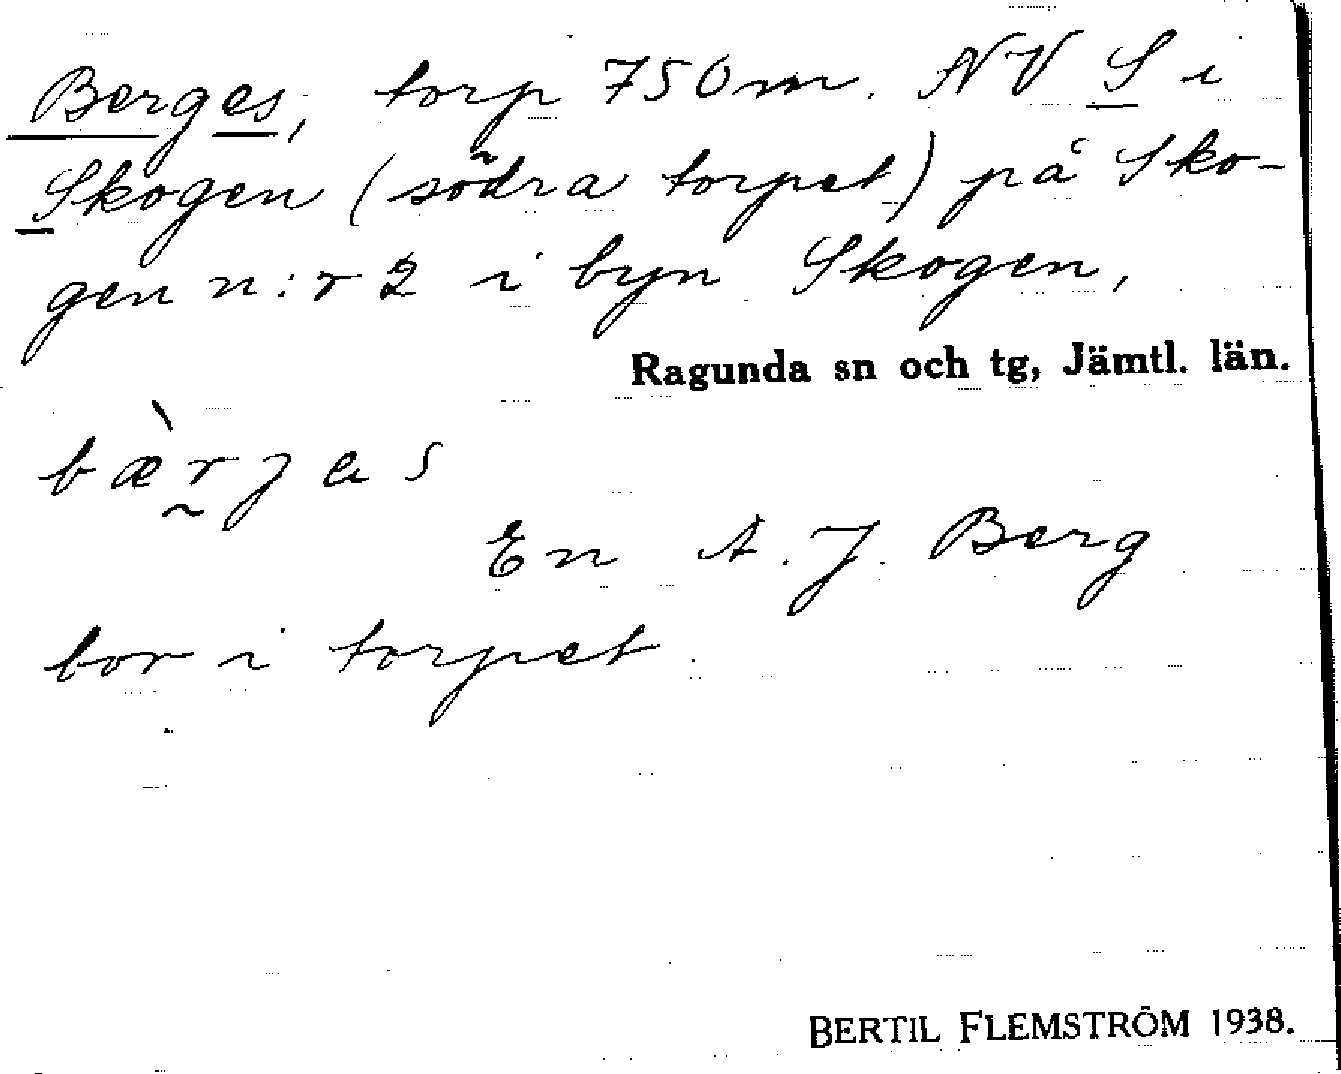 Berges, torp 750 m. NV S i
Skogen (södra torpet) på Sko-
gen n:r 2 i byn Skogen,
Ragunda sn och tg, Jämtl. län.
bæ̀r̰jas
En A. J. Berg
bor i torpet.
BERTIL FLEMSTRÖM 1938.